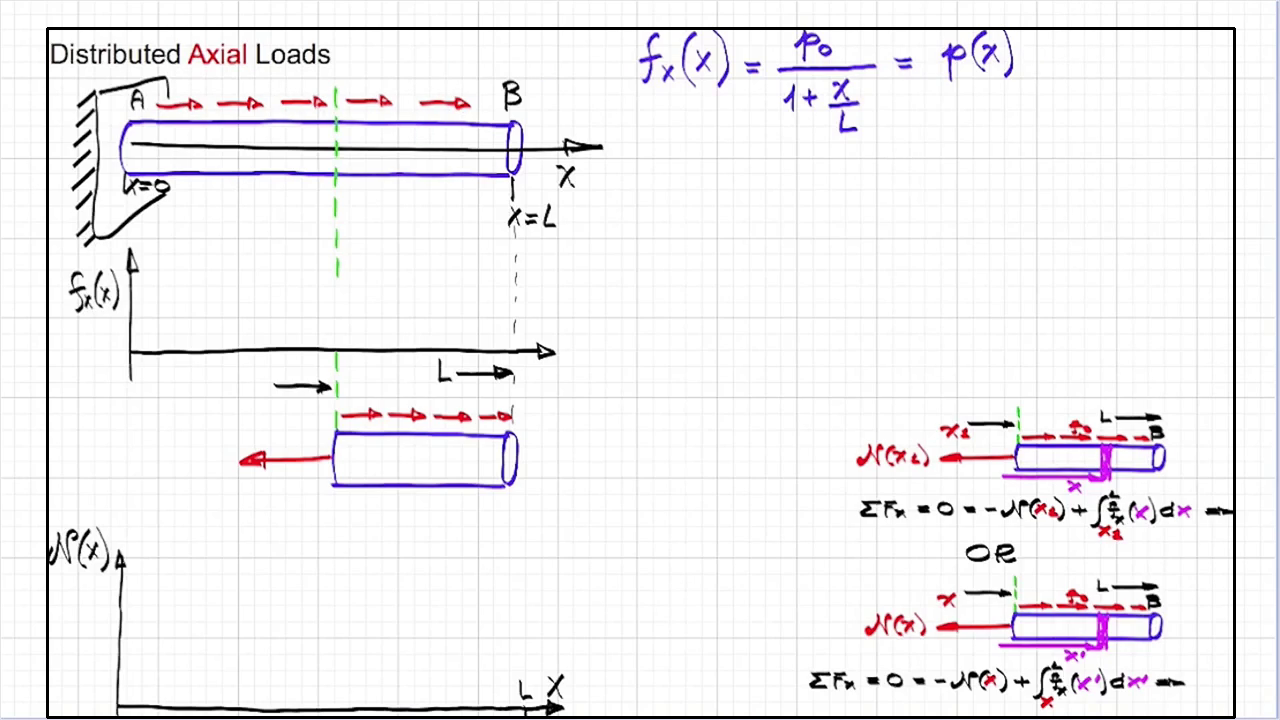 Distributed Axial Loads
f_x(x) = p_0 / (1 + x/L) = p(x)
A
B
x
x=0
x=L
f_x(x)
L
N(x)
L x
x_1 L
p_0 B
N(x_1)
x
ΣF_x = 0 = -N(x_1) + ∫_{x_1}^{L} f_x(x) dx ⇒
OR
x L
p_0 B
N(x)
x'
ΣF_x = 0 = -N(x) + ∫_x^L f_x(x') dx' ⇒